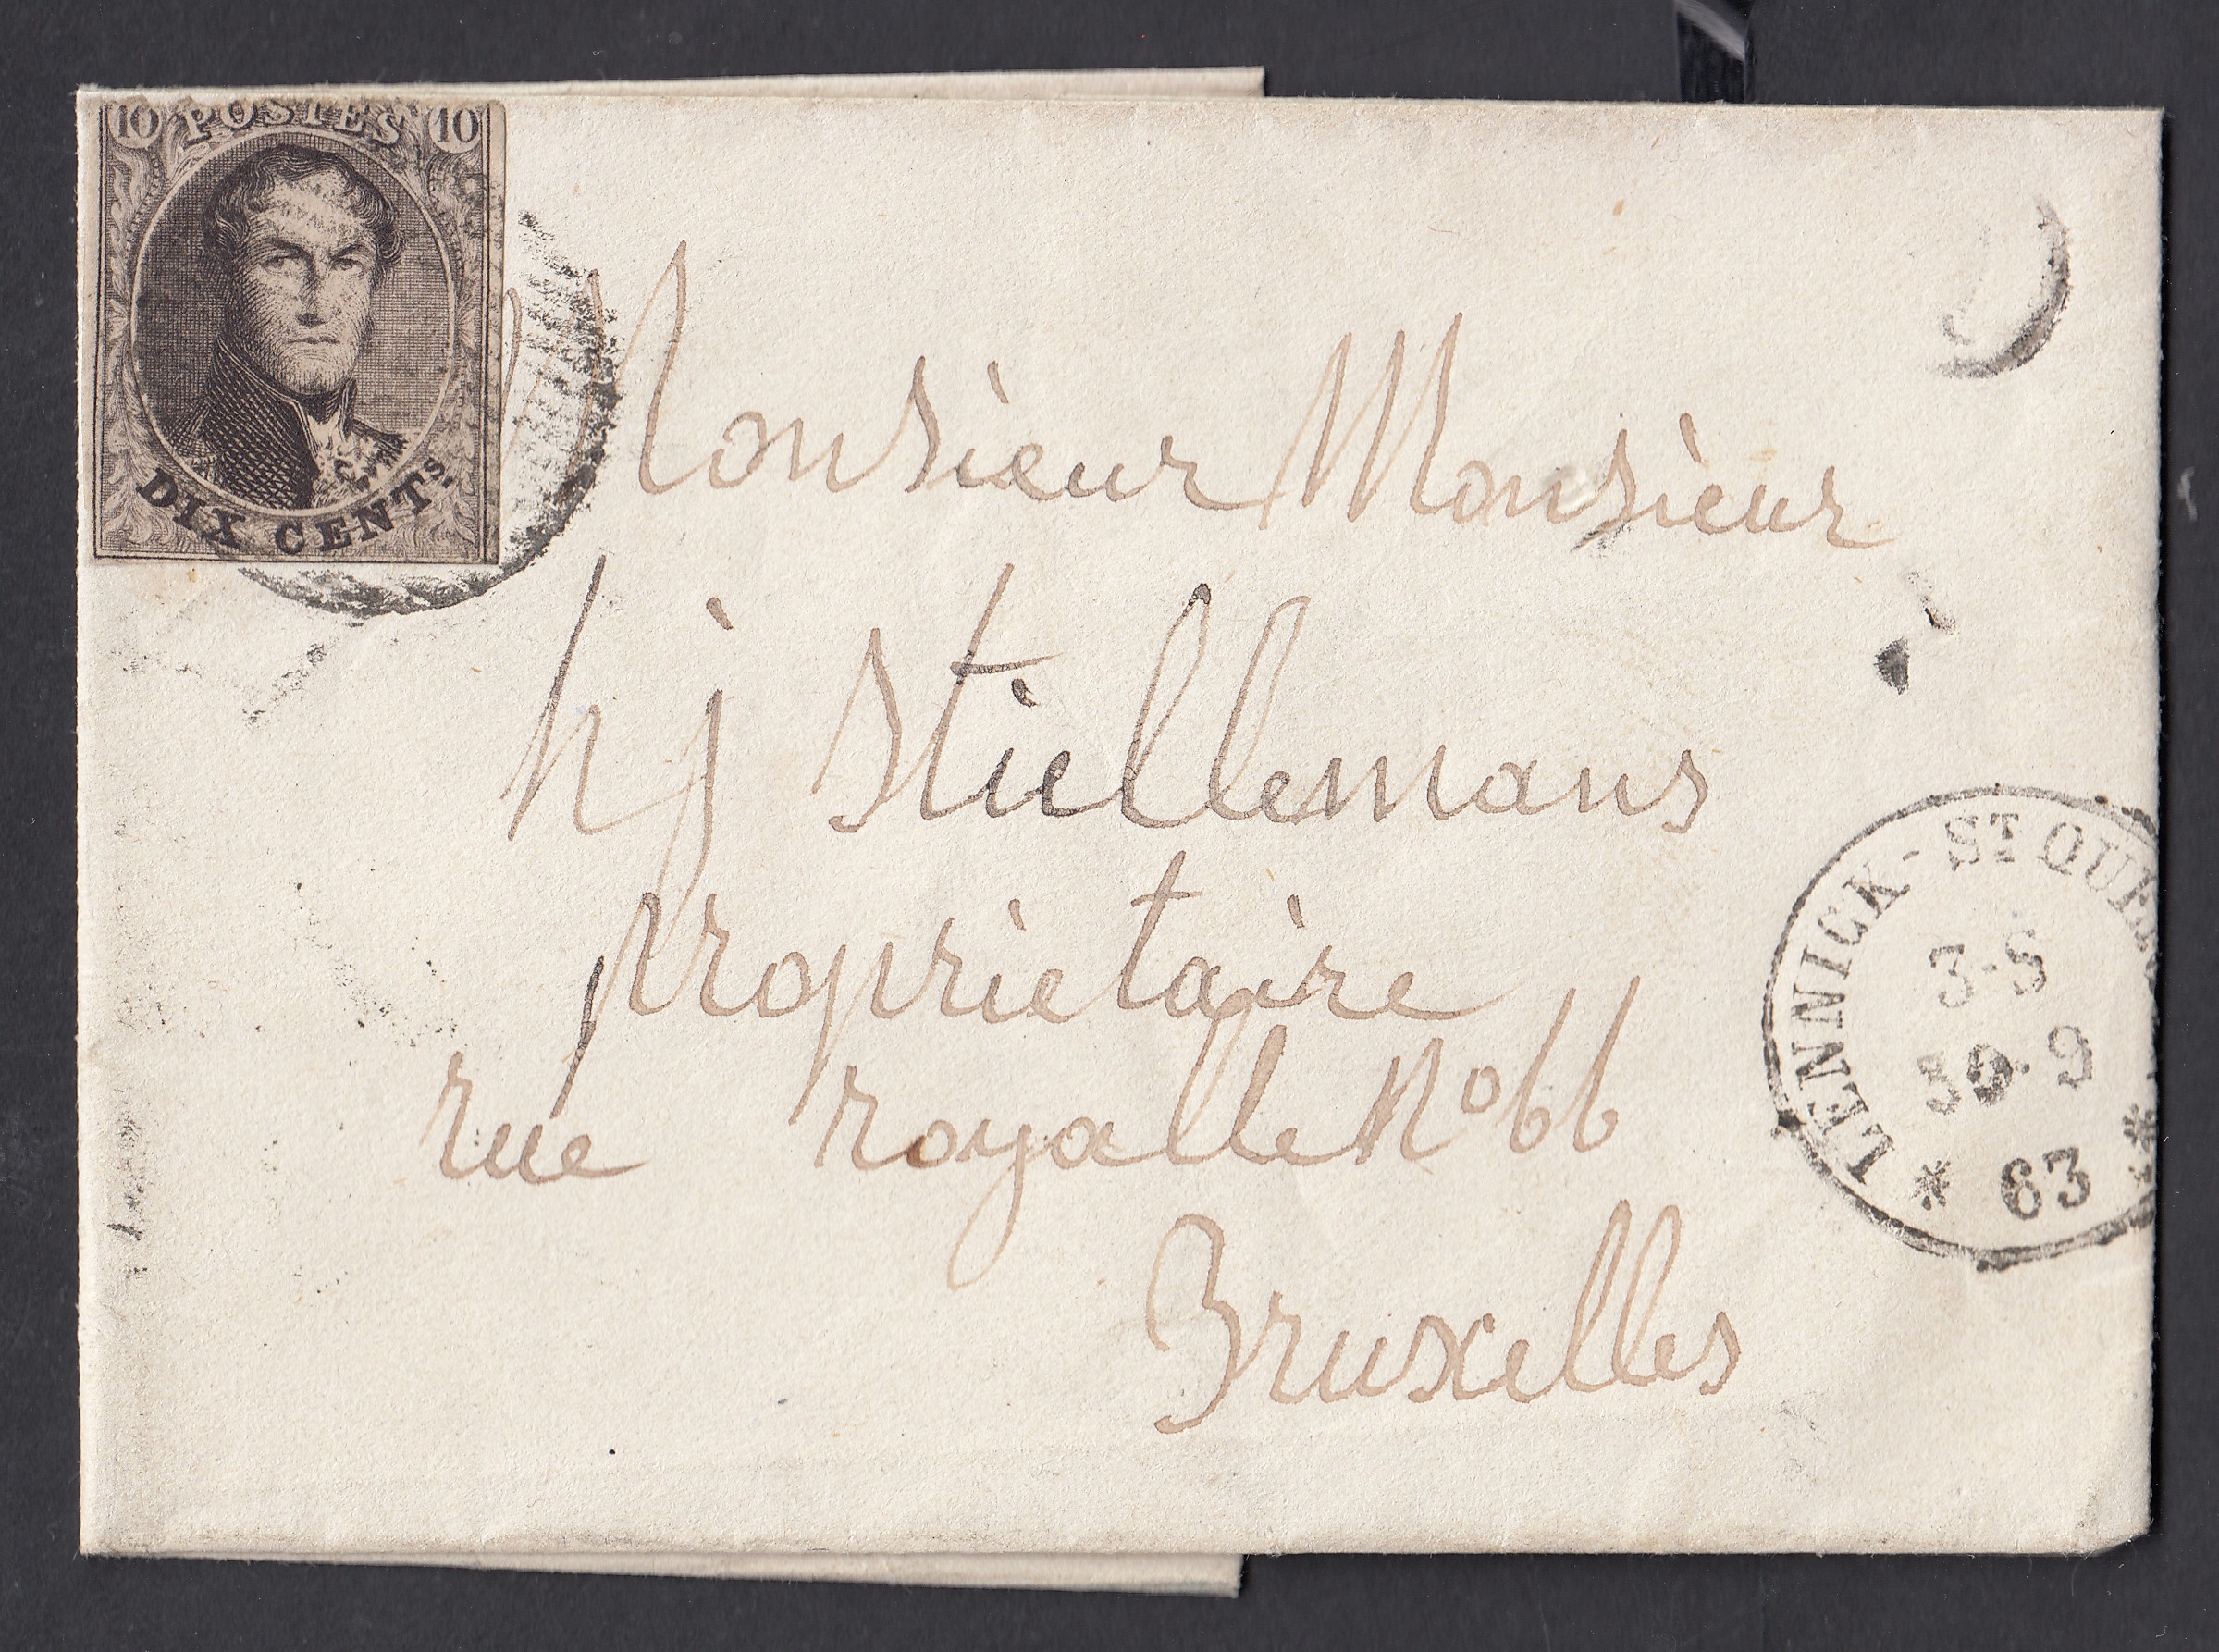 10 POSTES 10
DIX CENTS
Monsieur Monsieur
hj Stiellemans
proprietaire
rue royalle No 66
Bruxelles
LENNICK-ST QUE
3-S
30 9
63